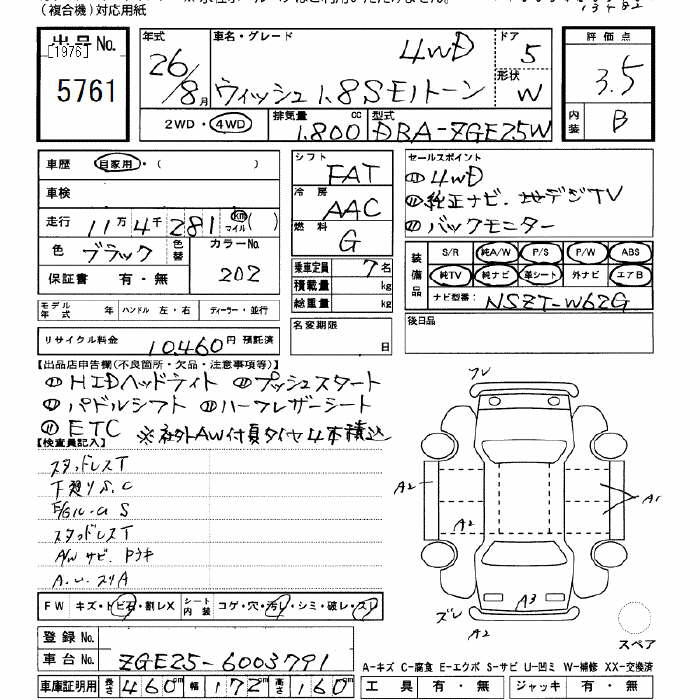 (複合機)対応用紙
出品No.
[1976]
5761
年式
26/8月
車名・グレード
4WD
ウィッシュ1.8Sモノトーン
ドア
5
形状
W
評価点
3.5
内装
B
2WD・4WD
排気量
1.800cc
型式
DBA-ZGE25W
車歴
自家用・( )
車検
走行
11万4千281
km
マイル
( )
色
ブラック
色替
カラーNo.
202
保証書 有・無
シフト
FAT
冷房
AAC
燃料
G
乗車定員 7名
積載量 kg
総重量 kg
セールスポイント
4WD
純正ナビ.地デジTV
バックモニター
装備品
S/R 純A/W P/S P/W ABS
純TV 純ナビ 革シート 外ナビ エアB
ナビ型番:NSZT-W62G
モデル年式 年 ハンドル 左・右 ディーラー・並行
名変期限
日
後日品
リサイクル料金 10,460円 預託済
【出品店申告欄(不良箇所・欠品・注意事項等)】
HIDヘッドライト プッシュスタート
パドルシフト ハーフレザーシート
ETC ※社外AW付夏タイヤ4本積込
【検査員記入】
スタッドレスT
下廻りS.C
スタッドレスT
A/W サビ.
フレ
A2
A1
A2
A3
ズレ
A2
スペア
FW キズ・トビ石・割レX
シート内装 コゲ・穴・汚レ・シミ・破レ・スレ
登録No.
車台No. ZGE25-6003791
車庫証明用 長さ 460cm 幅 172cm 高さ 160cm
A-キズ C-腐食 E-エクボ S-サビ U-凹ミ W-補修 XX-交換済
工具 有・無 ジャッキ 有・無